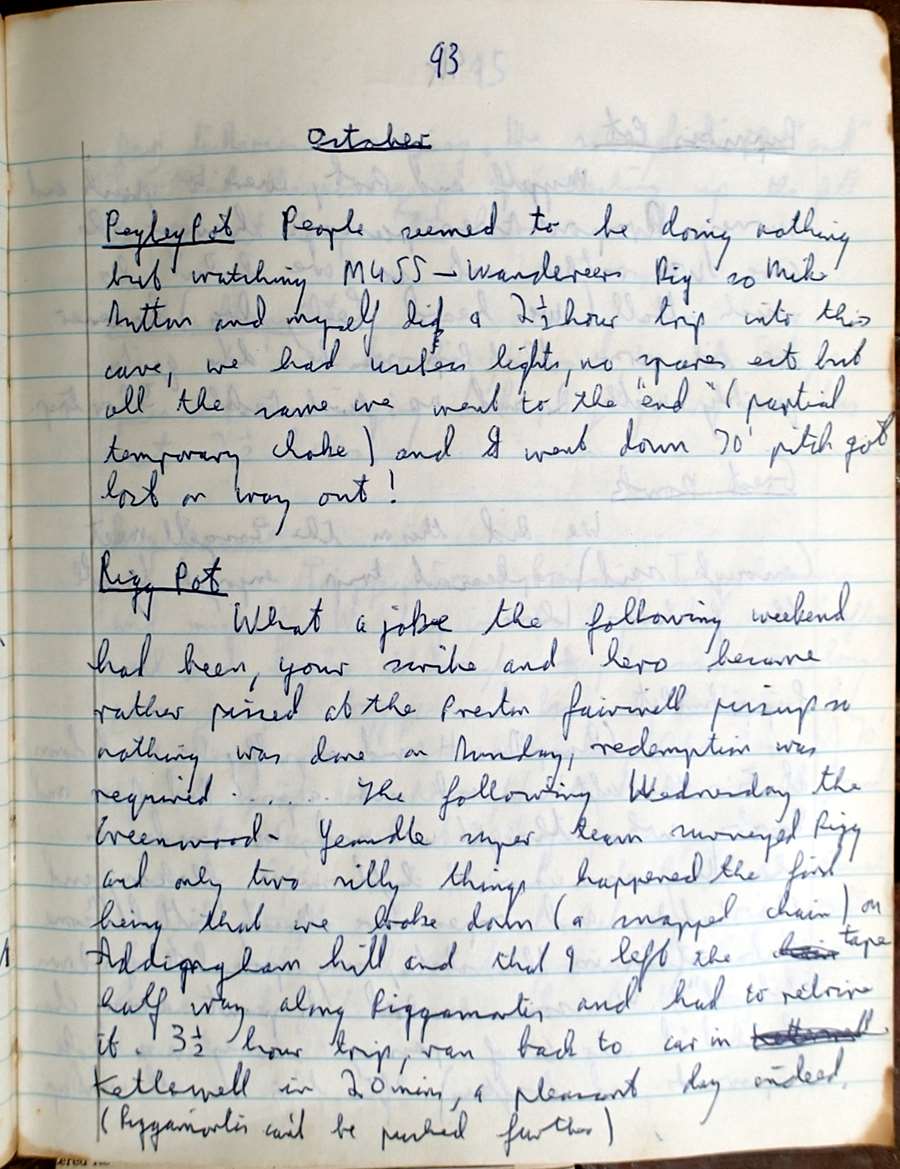 93
October
Peyley Pot People seemed to be doing nothing
but watching MUSS - Wandereers Rig so Mike
Hutton and myself did a 2½ hour trip into this
cave, we had useless lights, no spares ect but
all the same we went to the "end" (partial
temporary choke) and I went down 70' pitch got
lost on way out!
Rigg Pot
What a joke the following weekend
had been, your scribe and hero became
rather pissed at the Preston fairwell pissup so
nothing was done on Sunday, redemption was
required ...... The following Wednesday the
Greenwood - Yeandle super team surveyed Rigg
and only two silly things happened the first
being that we broke down (a snapped chain) on
Addingham hill and that I left the tape
half way along Riggamortis and had to retrive
it. 3½ hour trip, ran back to car in
Kettlewell in 20 mins, a pleasant day indeed.
(Riggamortis can't be pushed further)